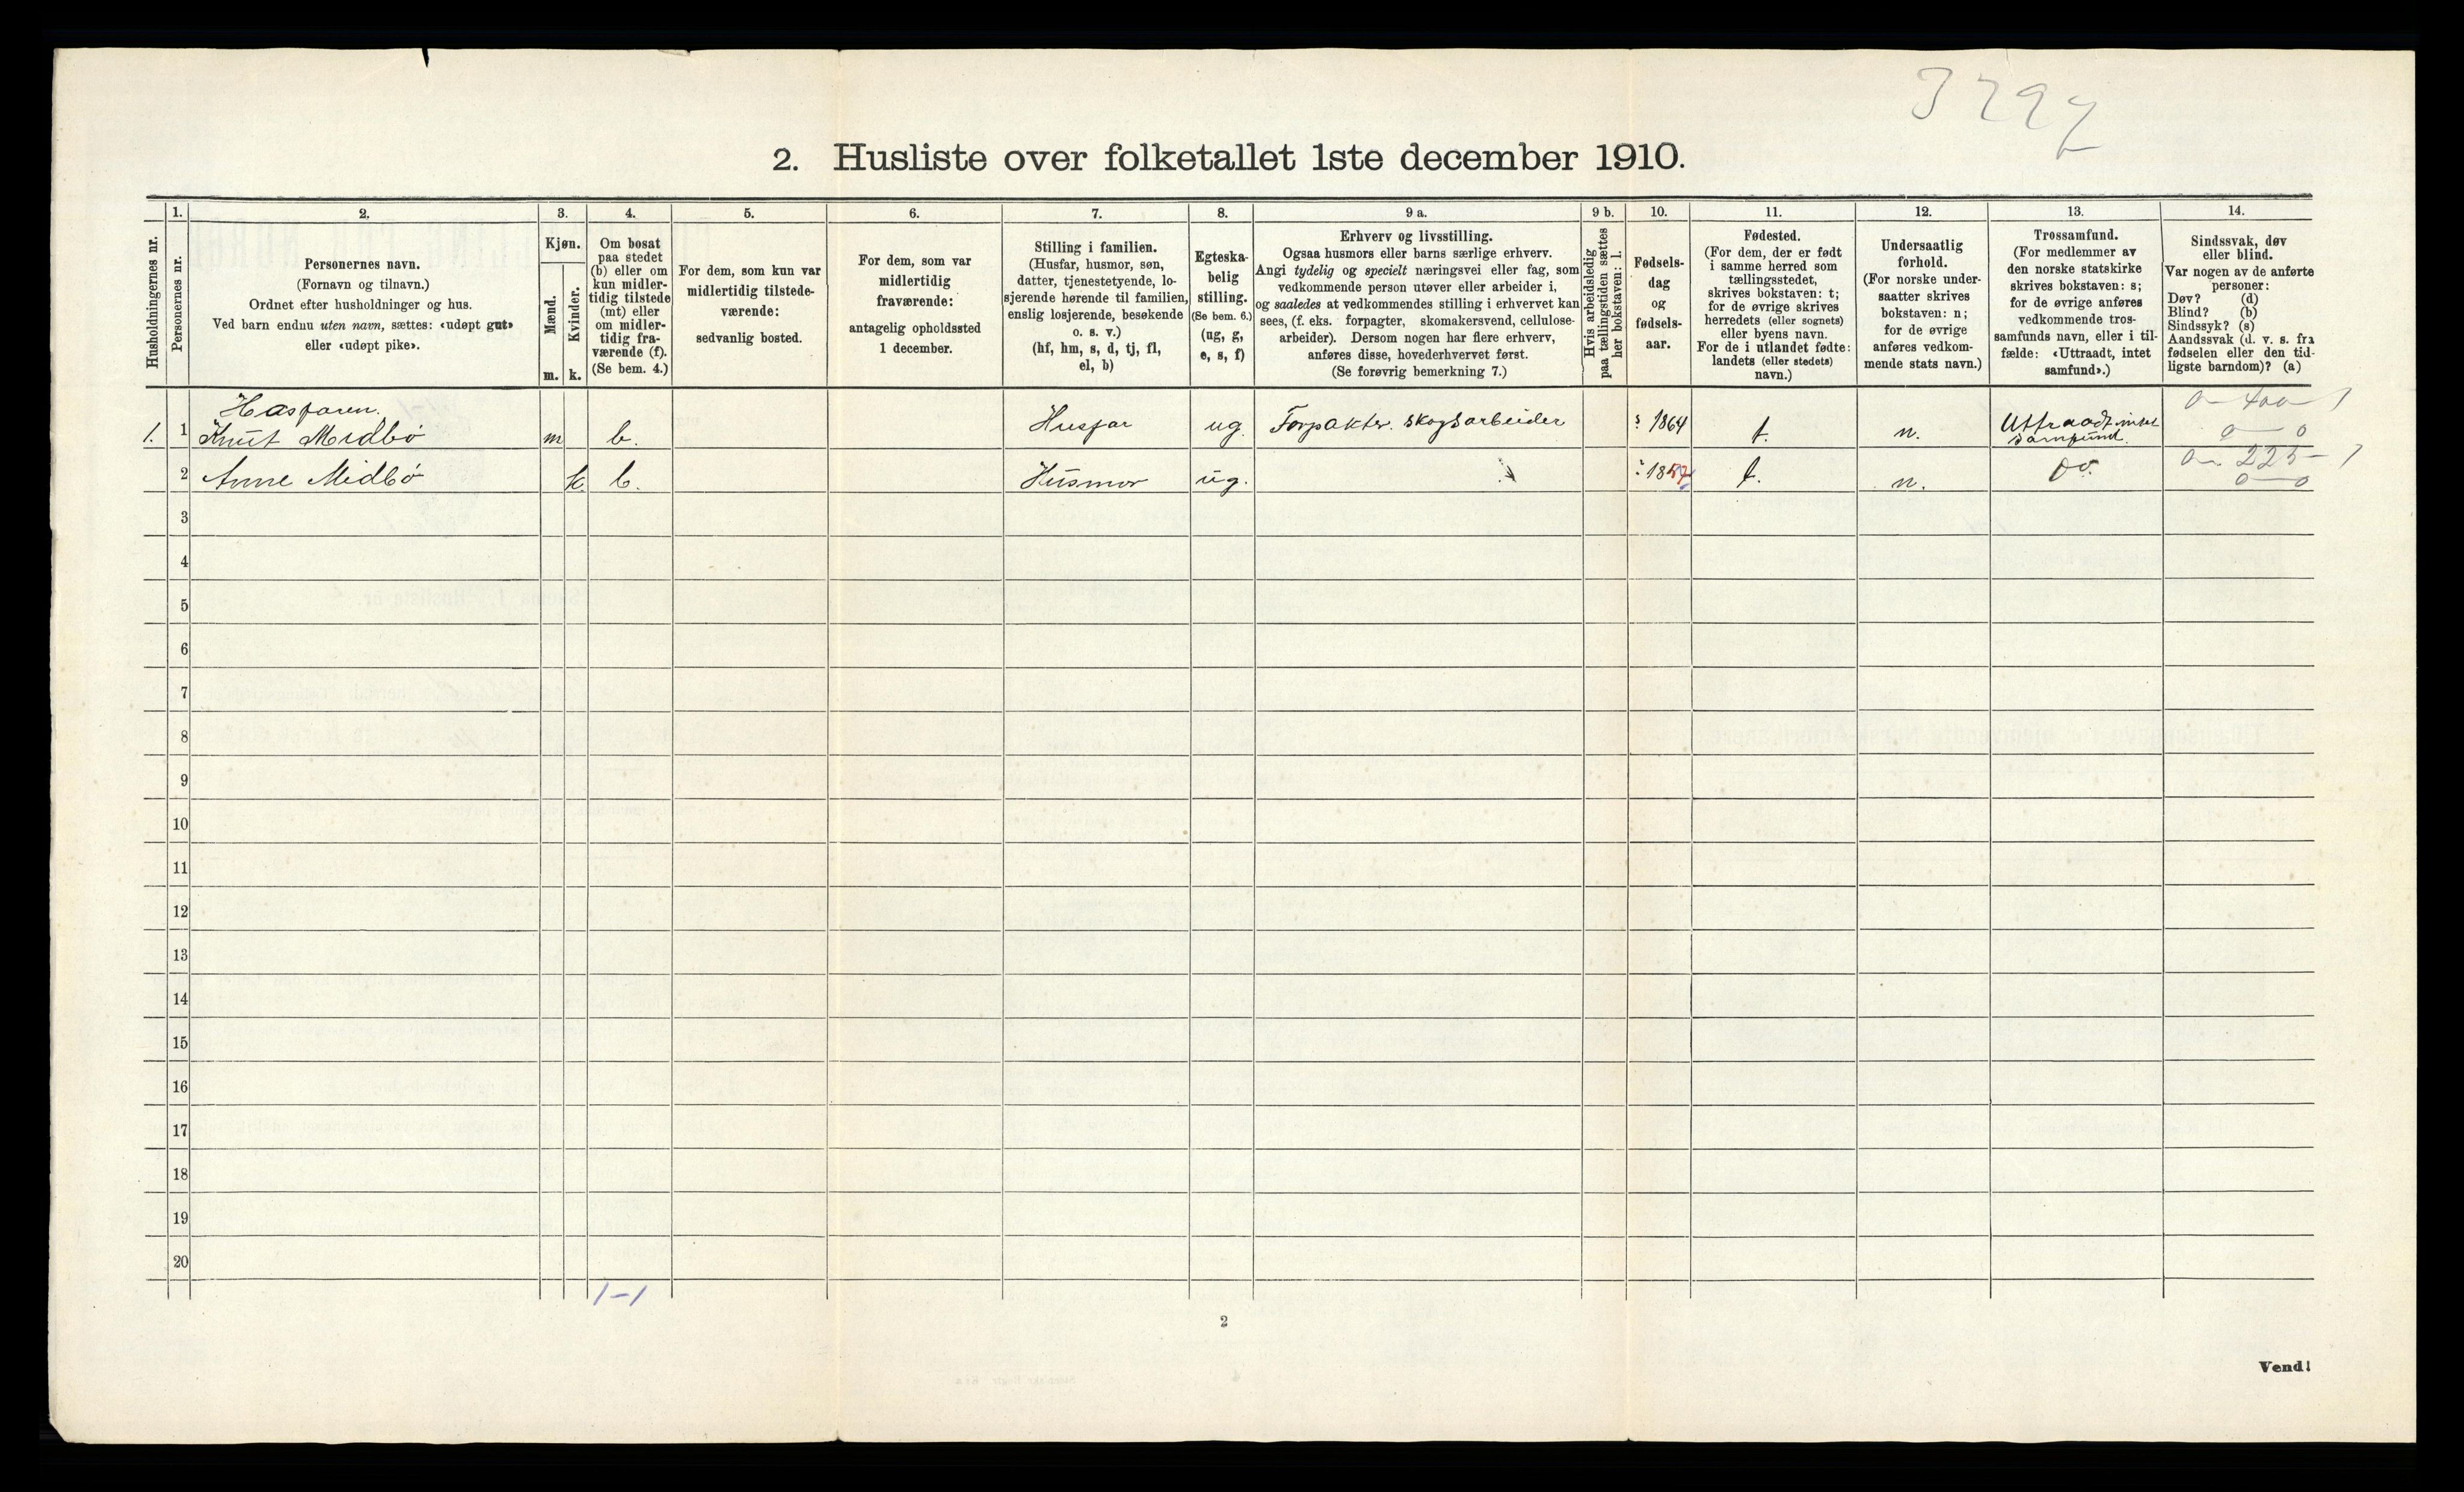 3297
2. Husliste over folketallet 1ste december 1910.
Husholdningernes nr.
1.
Personernes nr.
2.
Personernes navn.
(Fornavn og tilnavn.)
Ordnet efter husholdninger og hus.
Ved barn endnu uten navn, sættes: «udøpt gut»
eller «udøpt pike».
3.
Kjøn.
Mænd.
Kvinder.
m. k.
4.
Om bosat
paa stedet
(b) eller om
kun midler-
tidig tilstede
(mt) eller
om midler-
tidig fra-
værende (f).
(Se bem. 4.)
5.
For dem, som kun var
midlertidig tilstede-
værende:
sedvanlig bosted.
6.
For dem, som var
midlertidig
fraværende:
antagelig opholdssted
1 december.
7.
Stilling i familien.
(Husfar, husmor, søn,
datter, tjenestetyende, lo-
sjerende hørende til familien,
enslig losjerende, besøkende
o. s. v.)
(hf, hm, s, d, tj, fl,
el, b)
8.
Egteska-
belig
stilling.
(Se bem. 6.)
(ug, g,
e, s, f)
9 a.
Erhverv og livsstilling.
Ogsaa husmors eller barns særlige erhverv.
Angi tydelig og specielt næringsvei eller fag, som
vedkommende person utøver eller arbeider i,
og saaledes at vedkommendes stilling i erhvervet kan
sees, (f. eks. forpagter, skomakersvend, cellulose-
arbeider). Dersom nogen har flere erhverv,
anføres disse, hovederhvervet først.
(Se forøvrig bemerkning 7.)
9 b.
Hvis arbeidsledig
paa tællingstiden sættes
her bokstaven: l.
10.
Fødsels-
dag
og
fødsels-
aar.
11.
Fødested.
(For dem, der er født
i samme herred som
tællingsstedet,
skrives bokstaven: t;
for de øvrige skrives
herredets (eller sognets)
eller byens navn.
For de i utlandet fødte:
landets (eller stedets)
navn.)
12.
Undersaatlig
forhold.
(For norske under-
saatter skrives
bokstaven: n;
for de øvrige
anføres vedkom-
mende stats navn.)
13.
Trossamfund.
(For medlemmer av
den norske statskirke
skrives bokstaven: s;
for de øvrige anføres
vedkommende tros-
samfunds navn, eller i til-
fælde: «Uttraadt, intet
samfund».)
14.
Sindssvak, døv
eller blind.
Var nogen av de anførte
personer:
Døv? (d)
Blind? (b)
Sindssyk? (s)
Aandssvak (d. v. s. fra
fødselen eller den tid-
ligste barndom)? (a)
1. 1 Knut Midbø m b. Husfar ug. Forpakter. skogsarbeider 1864 t. n. Uttraadt intet
samfund.
2 Anne Midbø k b. Husmor ug. 1857 t. n. Do.
225
3
4
5
6
7
8
9
10
11
12
13
14
15
16
17
18
19
20
1-1
2
Vend!